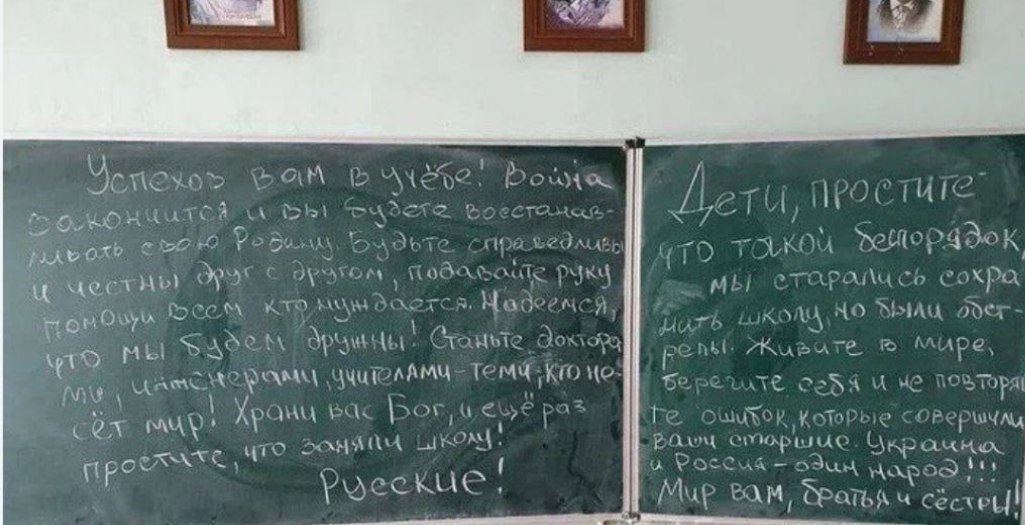 Успехов вам в учёбе! Война
закончится и вы будете восстанав-
ливать свою Родину. Будьте справедливы
и честны друг с другом, подавайте руку
помощи всем кто нуждается. Надеемся,
что мы будем дружны! Станьте доктора
ми, инженерами, учителями - теми, кто не-
сёт мир! Храни вас Бог, и ещё раз
простите, что заняли школу!
Русские!
Дети, простите
что такой беспорядок,
мы старались сохра
нить школу, но были обст-
релы. Живите в мире,
берегите себя и не повторяй
те ошибок, которые совершили
ваши старшие. Украина
и Россия - один народ!!!
Мир вам, братья и сёстры!